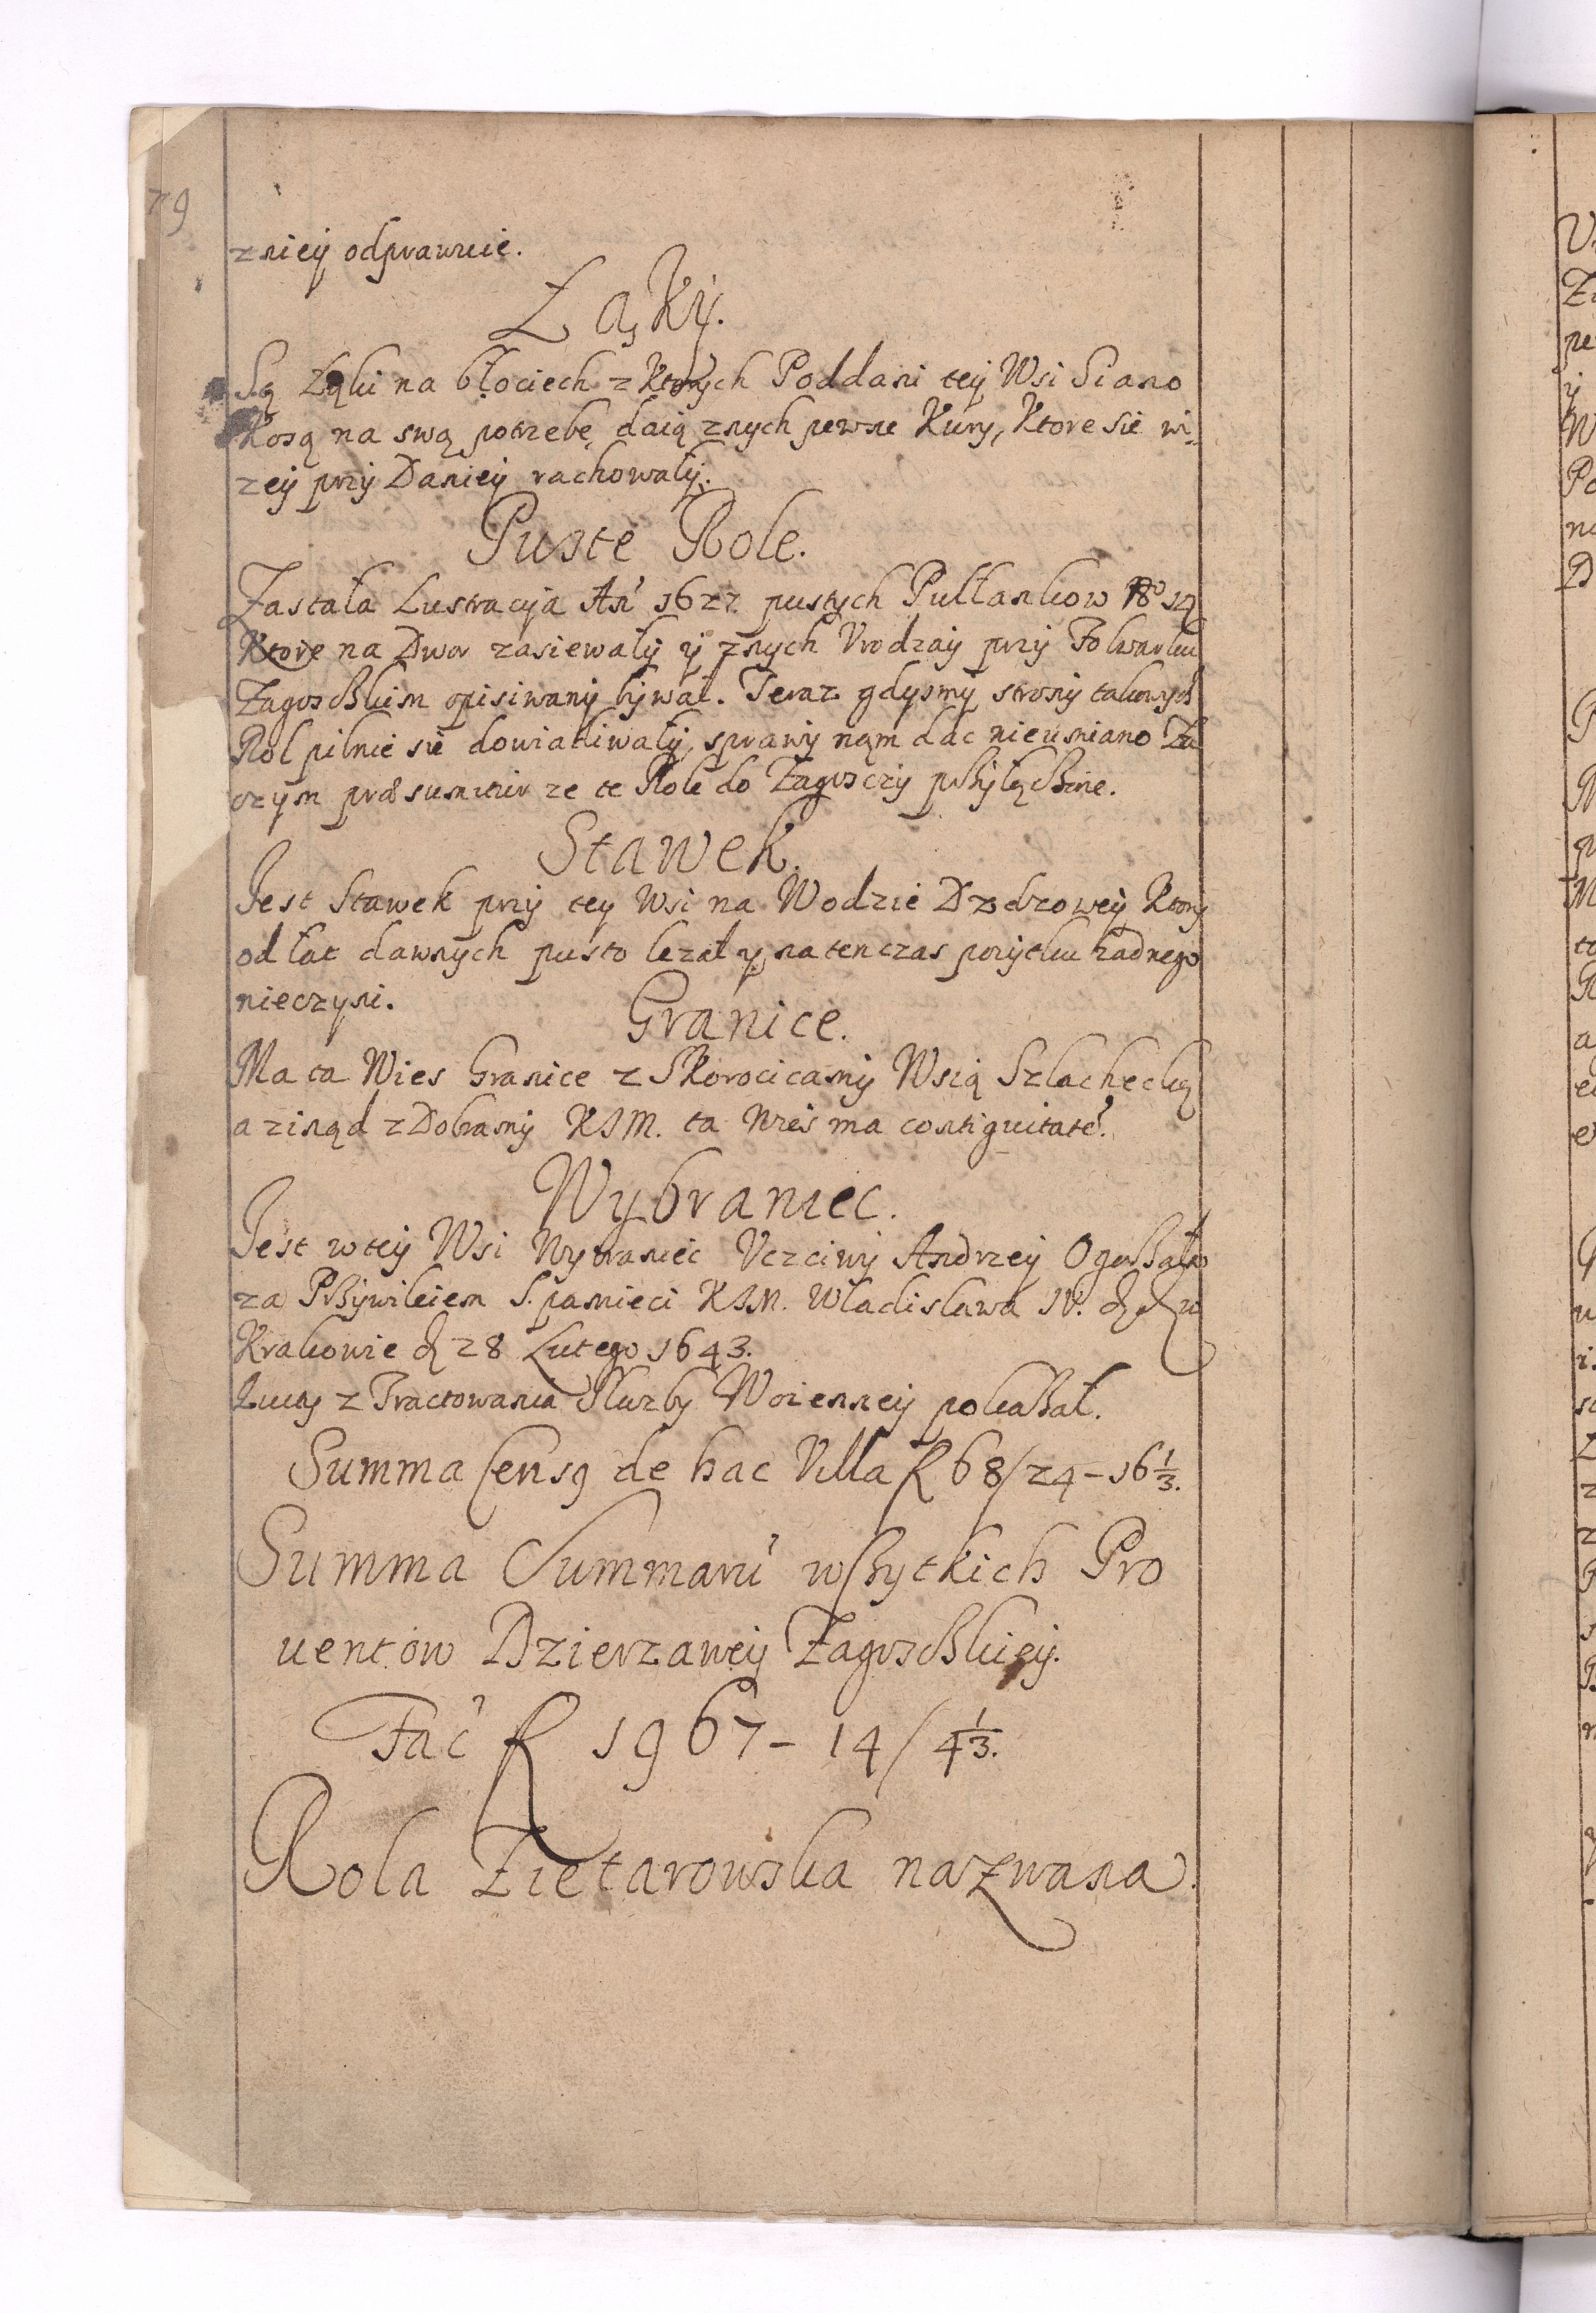 79
zniey odprawuie.
Łąky.
Są Łąki na błociech z ktorych Poddani tey Wsi Siano
Koszą na swą potrzebę daią znych pewne Kury, Ktore sie wy
zey przy Daniey rachowały.
Puste Role.
Zastała Lustracyja An 1627 pustych Pułłankow No 14
Ktore na Dwor zasiewały y znych Vrodzay przy Folwarku
Zagosckim opisiwany bywał. Teraz gdysmy strony takowych
Rol pilnie sie dowiadiwały, sprawy nąm dac nieumiano Za
czym præsumitur ze te Role do Zagosczy przyłączone.
Stawek.
Jest Stawek przy tey Wsi na Wodzie Dzdzowey Ktory
od łat dawnych pusto lezał y na ten czas pozytku zadnego
nieczyni.
Granice.
Ma ta Wies Granice z Skorocicamy Wsią Szlachecką
a zinąd z Dobramy KJM. ta Wies ma contiguitate.
Wybraniec.
Jest wtey Wsi Wybraniec Vczciwy Andrzey
za Przywileiem S. pamieci KJM. Wladislawa IV. w
Krakowie d 28 Lutego 1643.
Kwity z Tractowania Słuzby Woienney pokazał.
Summa Censg de hac Villa f 68/24-16 1/3.
Summa Summaru wszytkich Pro
uentow Dzierzawey Zagosckiey.
Fac f 1967-14/4 1/3.
Rola Zietarowska nazwana.